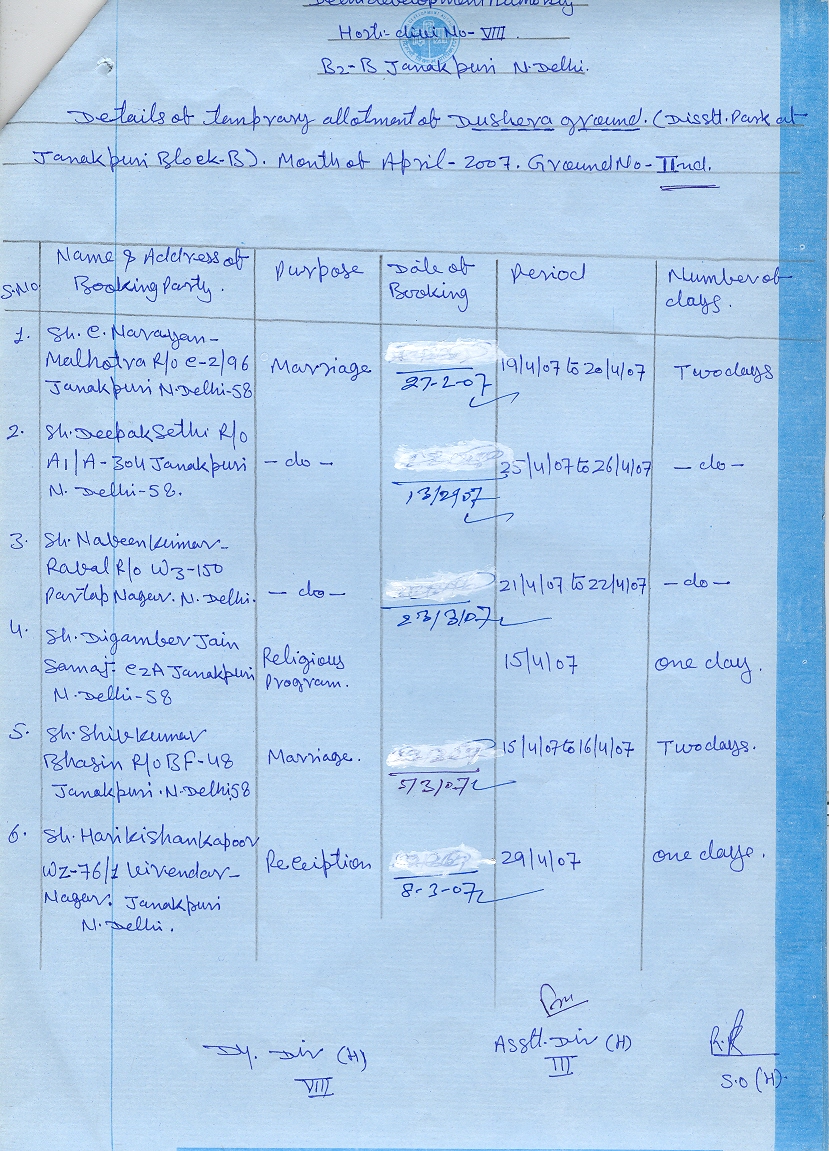 Horti-divi No- VIII.
B2-B Janakpuri N. Delhi.
Details of temprary allotment of Dushera ground. (Disstt. Park at
Janakpuri Block-B). Month of April-2007. Ground No- IInd.
S.No
Name & Address of
Booking Party.
Purpose
Date of
Booking
Period
Number of
days.
1.
Sh. C. Narayan-
Malhotra R/o C-2/96
Janakpuri N. Delhi-58
Marriage
27-2-07
19/4/07 to 20/4/07
Two days
2.
Sh. Deepak Sethi R/o
A1/A-304 Janakpuri
N. Delhi-58.
-do-
13/2/07
25/4/07 to 26/4/07
-do-
3.
Sh. Nabeen kumar-
Raval R/o WZ-150
Partap Nagar. N. Delhi.
-do-
23/3/07
21/4/07 to 22/4/07
-do-
4.
Sh. Digamber Jain
Samaj. C2A Janakpuri
N. Delhi-58
Religious
Program.
15/4/07
one day.
5.
Sh. Shiv kumar
Bhasin R/o BF-48
Janakpuri. N. Delhi, 58
Marriage.
5/3/07
15/4/07 to 16/4/07
Two days.
6.
Sh. Hari kishan kapoor
WZ-76/1
Nagar. Janakpuri
N. Delhi.
Receiption
8-3-07
29/4/07
one days.
Dy. Dir (H)
VIII
Asstt. Dir (H)
III
S.O (H).